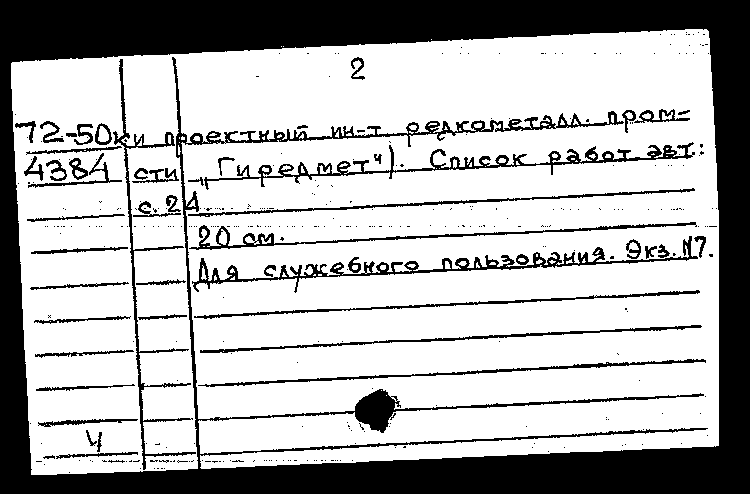 2
72-50ки проектный ин-т редкометалл. пром-
4384 сти „Гиредмет“). Список работ авт.:
с. 24
20 см.
Для служебного пользования. Экз. №7.
Ч